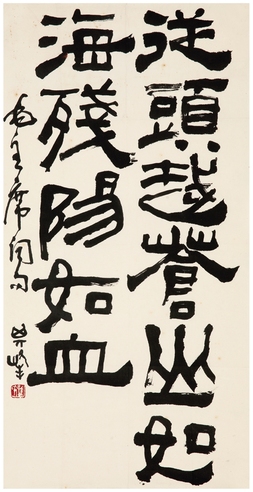 從頭越蒼山如
海殘陽如血
毛主席詞句